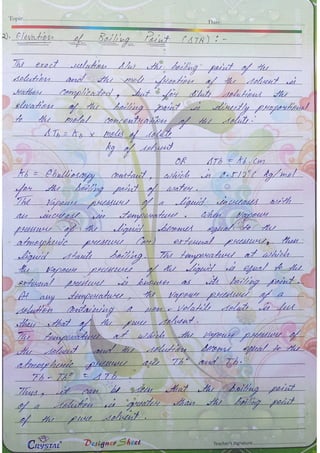 Topic Date
2). Elevation of Boiling Point (ΔTb) :-
The exact relation b/w the boiling point of the
solution and the mole fraction of the solvent is
rather complicated, but for dilute solutions the
elevation of the boiling point is directly proportional
to the molal concentration of the solute:
ΔTb = Kb x moles of solute
kg of solvent
OR ΔTb = Kb.Cm
Kb = Ebullioscopy constant, which is 0.512°C kg/mol
for the boiling point of water.
The vapour pressure of a liquid increases with
an increase in temperature. When vapour
pressure of the liquid becomes equal to the
atmospheric pressure (or) external pressure, then
liquid starts boiling. The temperature at which
the vapour pressure of the liquid is equal to the
external pressure is known as its boiling point.
At any temperature, the vapour pressure of a
solution containing a non-volatile solute is less
than that of the pure solvent.
The temperature at which the vapour pressure of
the solvent and the solution become equal to the
atmospheric pressure are Tb° and Tb.
Tb - Tb° = ΔTb
Thus, it can be seen that the boiling point
of a solution is greater than the boiling point
of the pure solvent.
CRYSTAL Designer Sheet Teacher's Signature